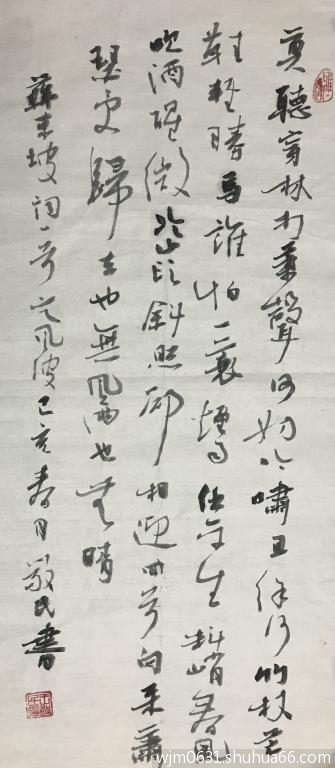 莫聽穿林打葉聲何妨吟嘯且徐行竹杖芒
鞋輕勝馬誰怕一蓑煙雨任平生料峭春風
吹酒醒微冷山頭斜照卻相迎回首向來蕭
瑟處歸去也無風雨也無晴
蘇東坡詞一首定風波己亥春月敬民書
wjm0631.shuhua66.com